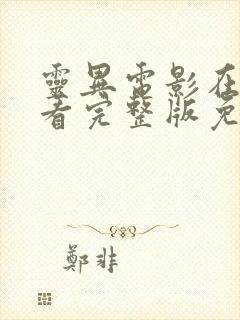 靈異電影在
看完整版免
鄭非